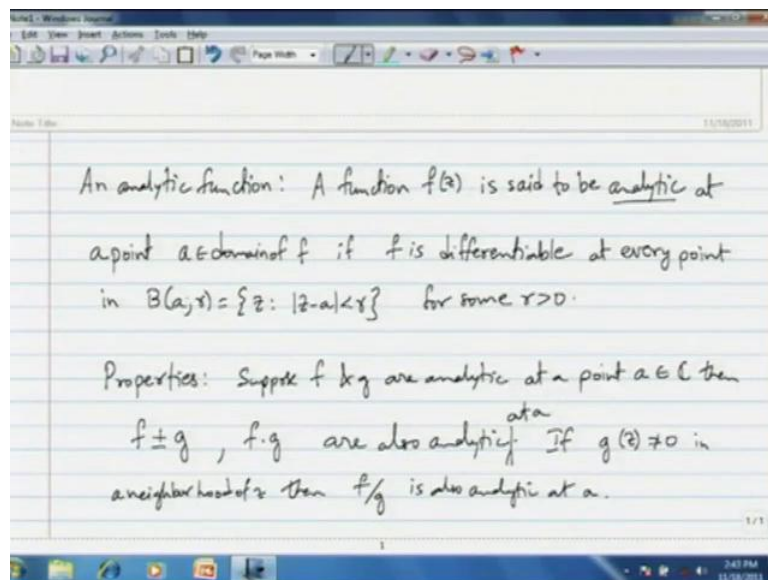 Note1 - Windows Journal
Edit View Insert Actions Tools Help
Page Width
Note Title
11/18/2011
An analytic function: A function f(z) is said to be analytic at
a point a ∈ domain of f if f is differentiable at every point
in B(a;r) = {z: |z-a|<r} for some r>0.
Properties: Suppose f & g are analytic at a point a ∈ ℂ then
f ± g, f·g are also analytic at a. If g(z) ≠ 0 in
a neighborhood of z then f/g is also analytic at a.
1/1
1
2:43 PM
11/18/2011